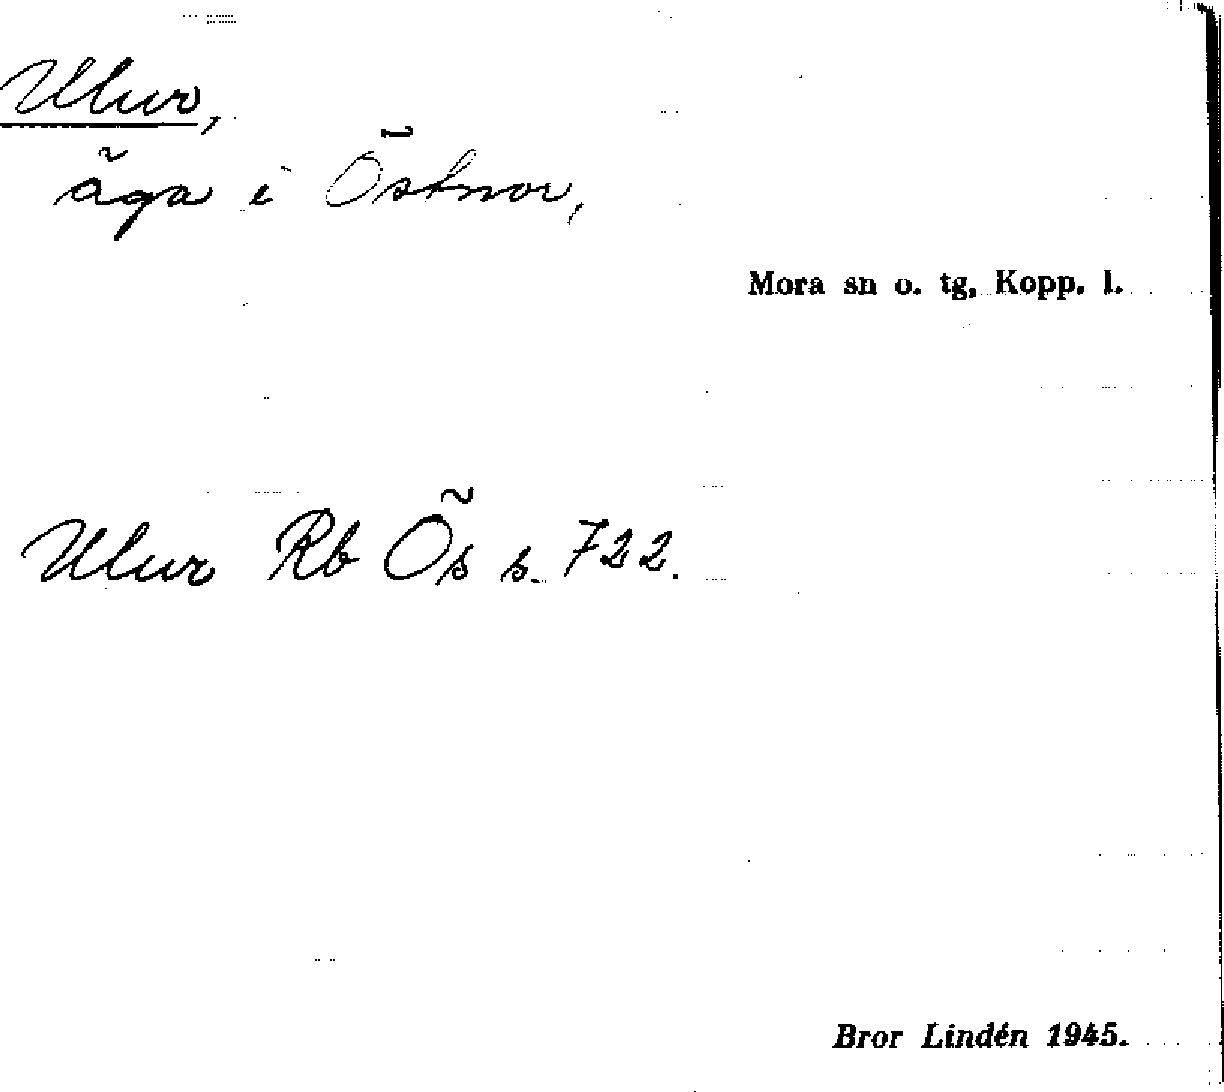 Ulur,
äga i Östnor,
Mora sn o. tg, Kopp. l.
Ulur Rb Ös s. 722.
Bror Lindén 1945.